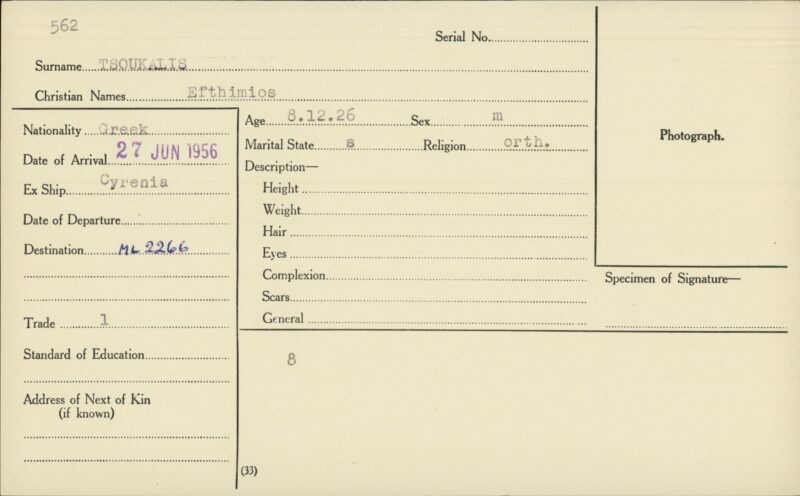 562
Serial No.
Surname TSOUKALIS
Christian Names Efthimios
Nationality Greek
Date of Arrival 27 JUN 1956
Ex Ship Cyrenia
Date of Departure
Destination ML 2266
Trade 1
Standard of Education
Address of Next of Kin
(if known)
Age 8.12.26 Sex m
Marital State s Religion orth.
Description—
Height
Weight
Hair
Eyes
Complexion
Scars
General
8
(33)
Photograph.
Specimen of Signature—